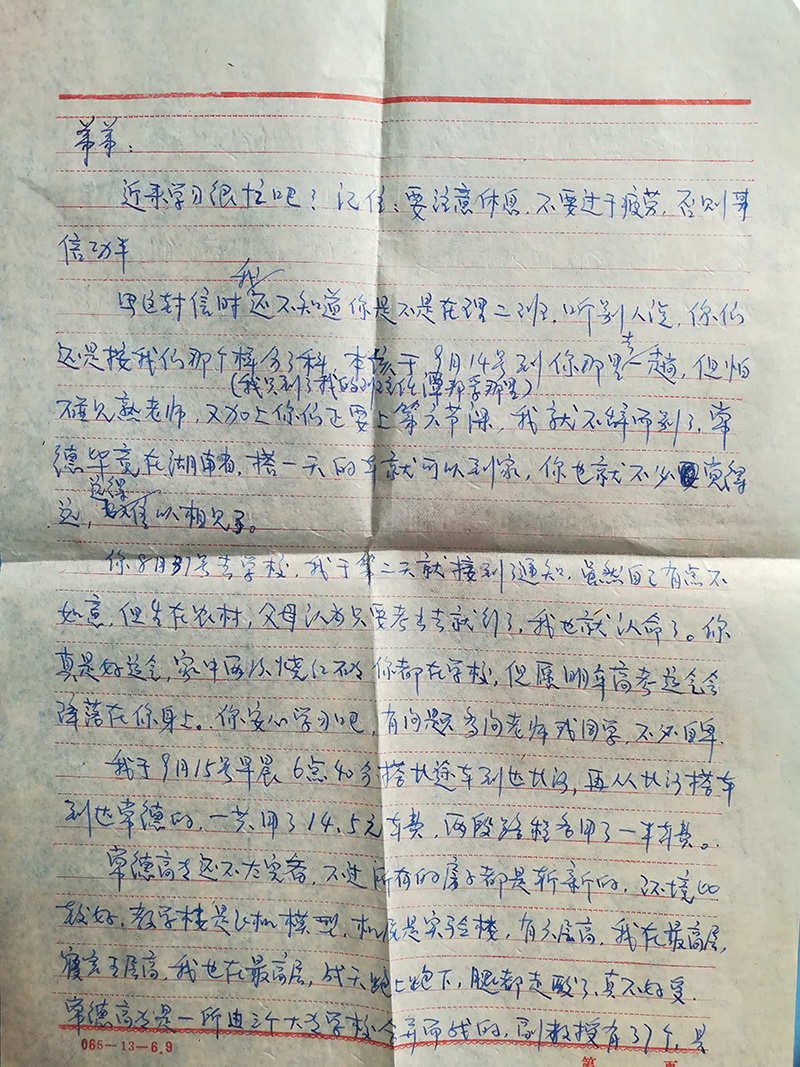 弟弟：
近来学习很忙吧？记住：要注意休息，不要过于疲劳，否则事
倍功半
我
写这封信时还不知道你是不是在理二班，听别人说，你们
去
还是按我们那个样分了科，本该于9月14号到你那里一趟，但怕
（我只到了我的班主任谭那学那里）
碰见熟老师，又加上你们正要上第六节课，我就不辞而别了，常
德毕竟在湖南省，搭一天的车就可以到家，你也就不必觉得
远，难以相见了。
你8月31号去学校，我于第二天就接到了通知，虽然自己有点不
如意，但生在农村，父母认为只要考出去就行了，我也就认命了。你
真是好运气，家中两次烧红砖你都在学校，但愿明年高考运气会
降落在你身上。你安心学习吧，有问题多问老师或同学，不必自卑
我于9月15号早晨6点40分搭长途车到达长沙，再从长沙搭车
到达常德的，一共用了14.5元车费，两段路程各用了一半车费。
常德高专还不太完备，不过所有的房子都是斩新的，环境比
较好，教学楼是飞机模型，机尾是实验楼，有六层高，我在最高层，
寝室五层高，我也在最高层，成天跑上跑下，腿都走酸了，真不好受
常德高专是一所由三个大专学校合并而成的，副教授有37个，是
065-13-6.9
第 页